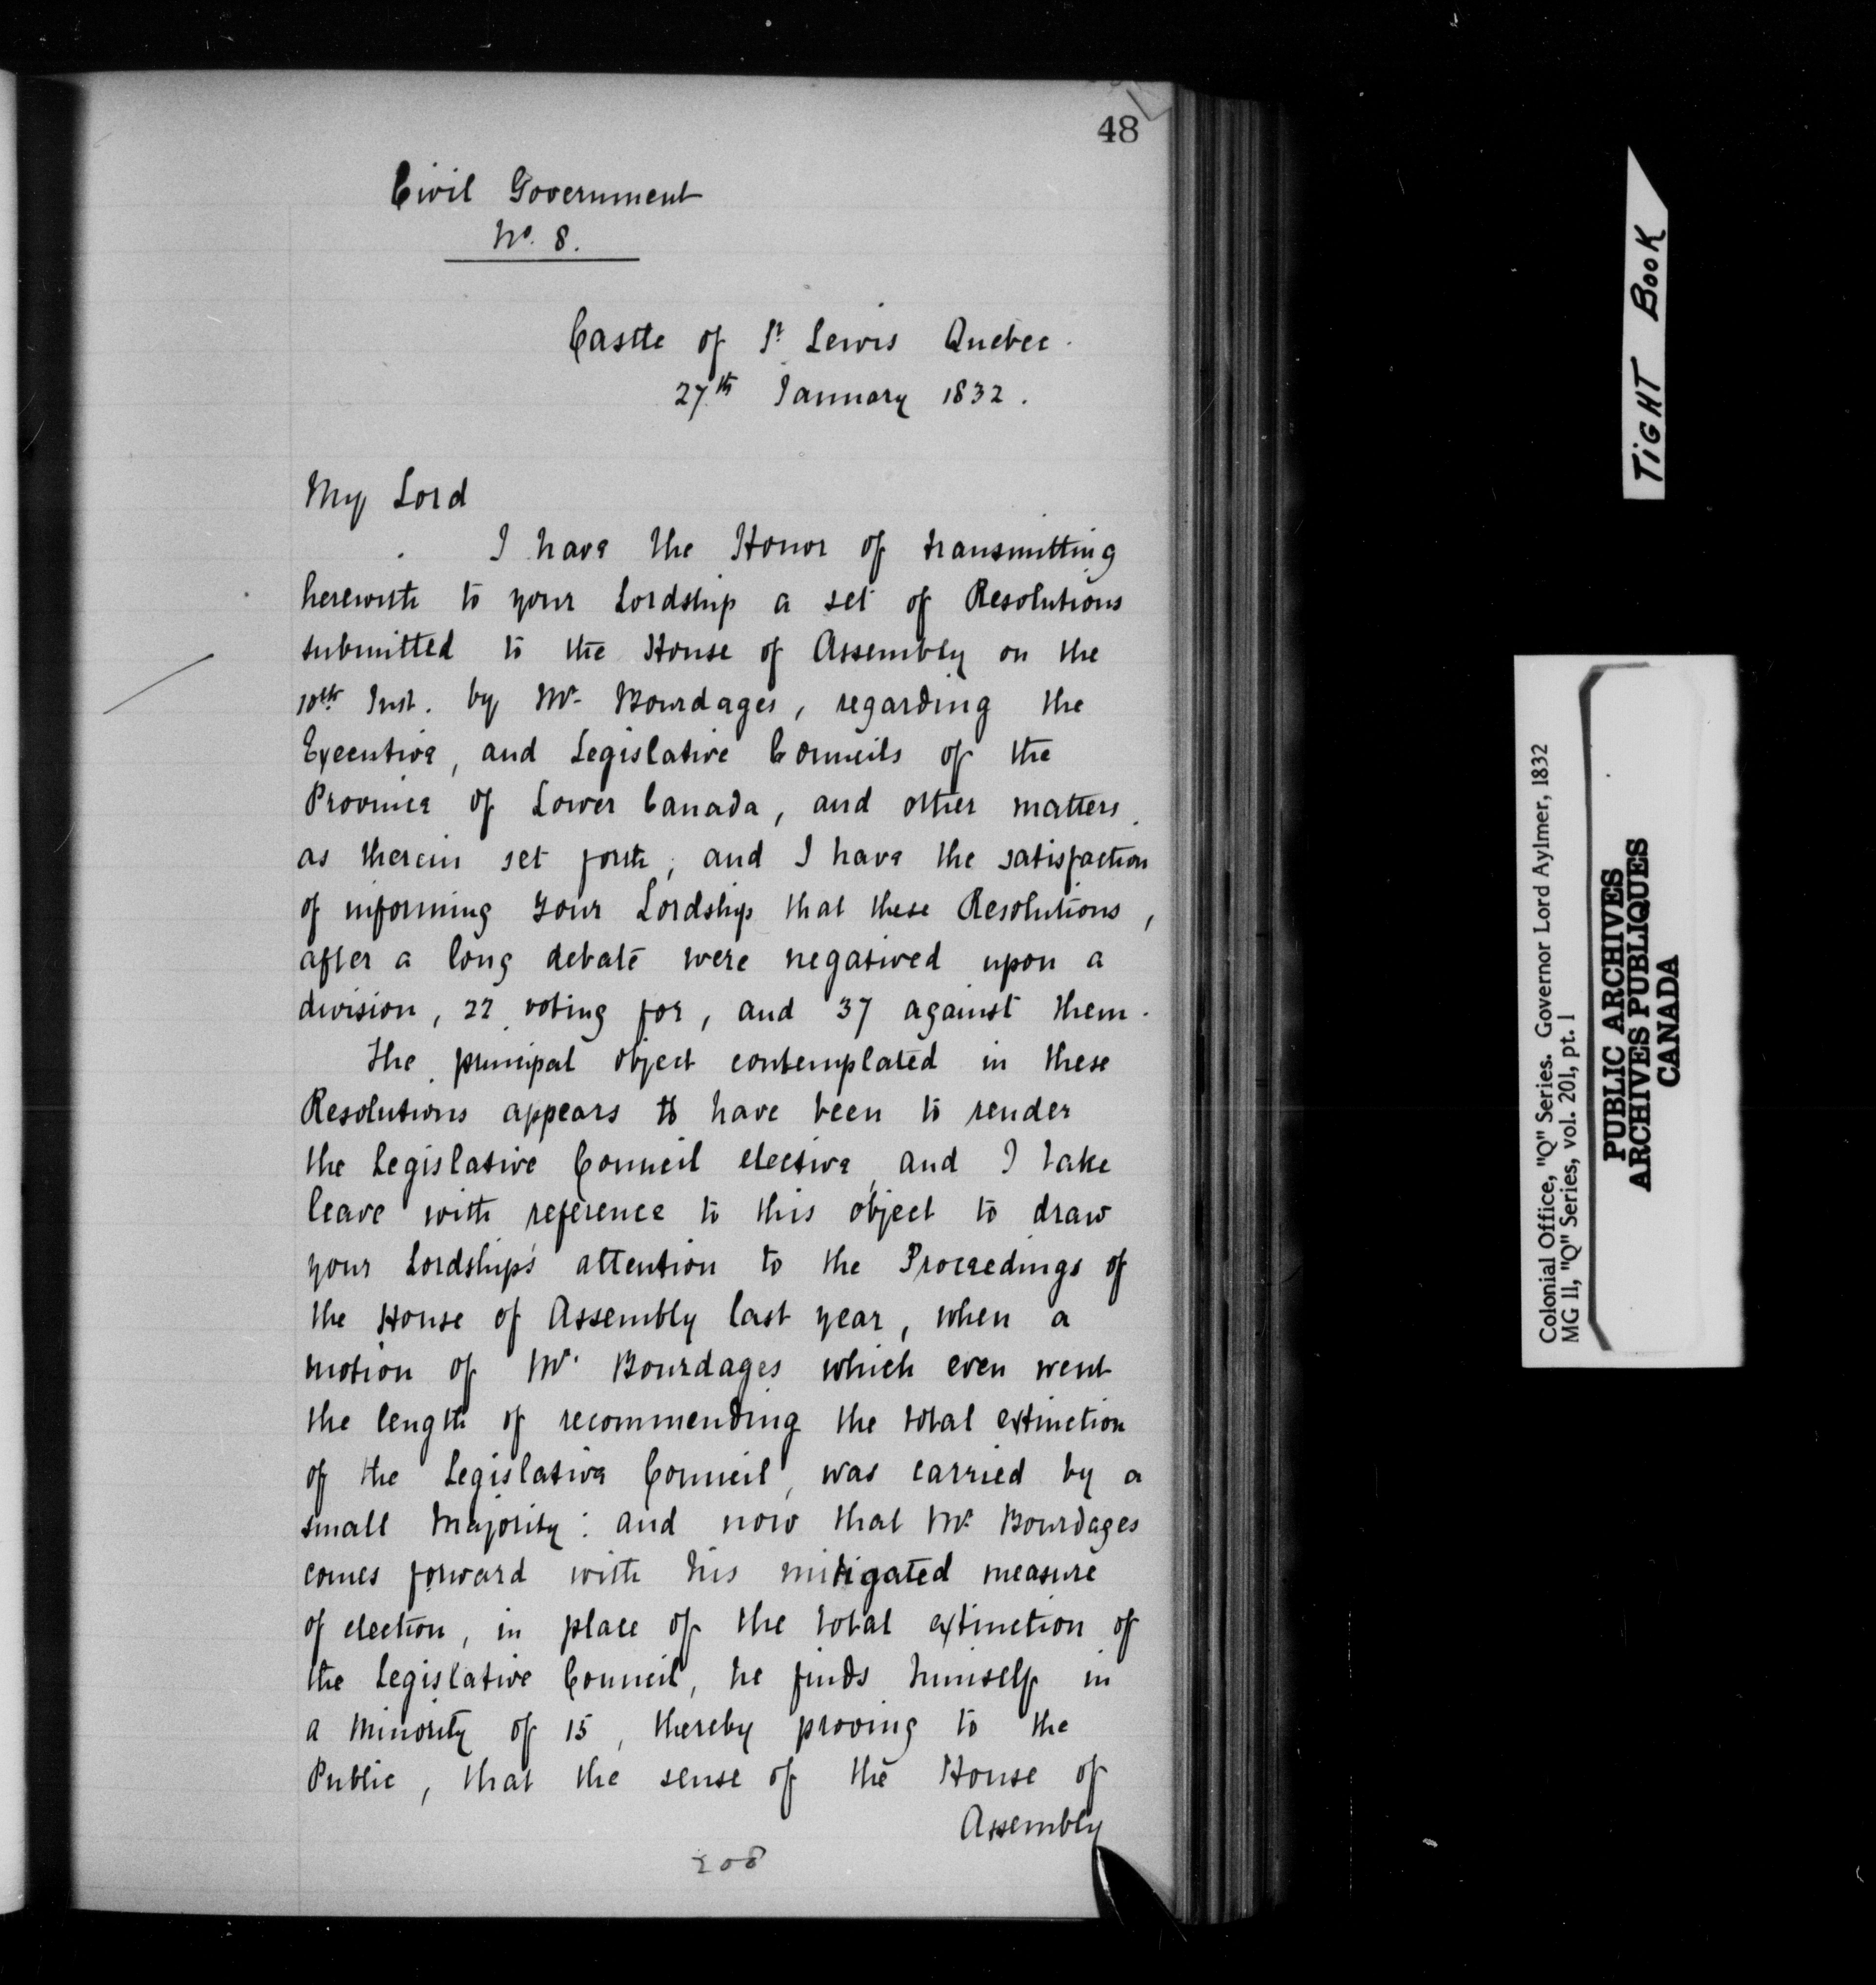 48
Civil Government
No. 8.
Castle of St Lewis Quebec.
27th January 1832.
My Lord
I have the Honor of transmitting
herewith to your Lordship a set of Resolutions
submitted to the House of Assembly on the
10th Inst. by Mr Bourdages, regarding the
Executive, and Legislative Councils of the
Province of Lower Canada, and other matters.
as therein set forth, and I have the satisfaction
of informing your Lordship that these Resolutions,
after a long debate were negatived upon a
division, 22 voting for, and 37 against them.
The principal object contemplated in these
Resolutions appears to have been to render
the Legislative Council elective, and I take
leave with reference to this object to draw
your Lordship's attention to the Proceedings of
the House of Assembly last year, when a
motion of Mr. Bourdages which even went
the length of recommending the total extinction
of the Legislative Council, was carried by a
small Majority: and now that Mr Bourdages
comes forward with his mitigated measure
of election, in place of the total extinction of
the Legislative Council, he finds himself in
a Minority of 15, thereby proving to the
Public, that the sense of the House of
Assembly
208
TIGHT BOOK
Colonial Office, "Q" Series. Governor Lord Aylmer, 1832
MG 11, "Q" Series, vol. 201, pt. 1
PUBLIC ARCHIVES
ARCHIVES PUBLIQUES
CANADA